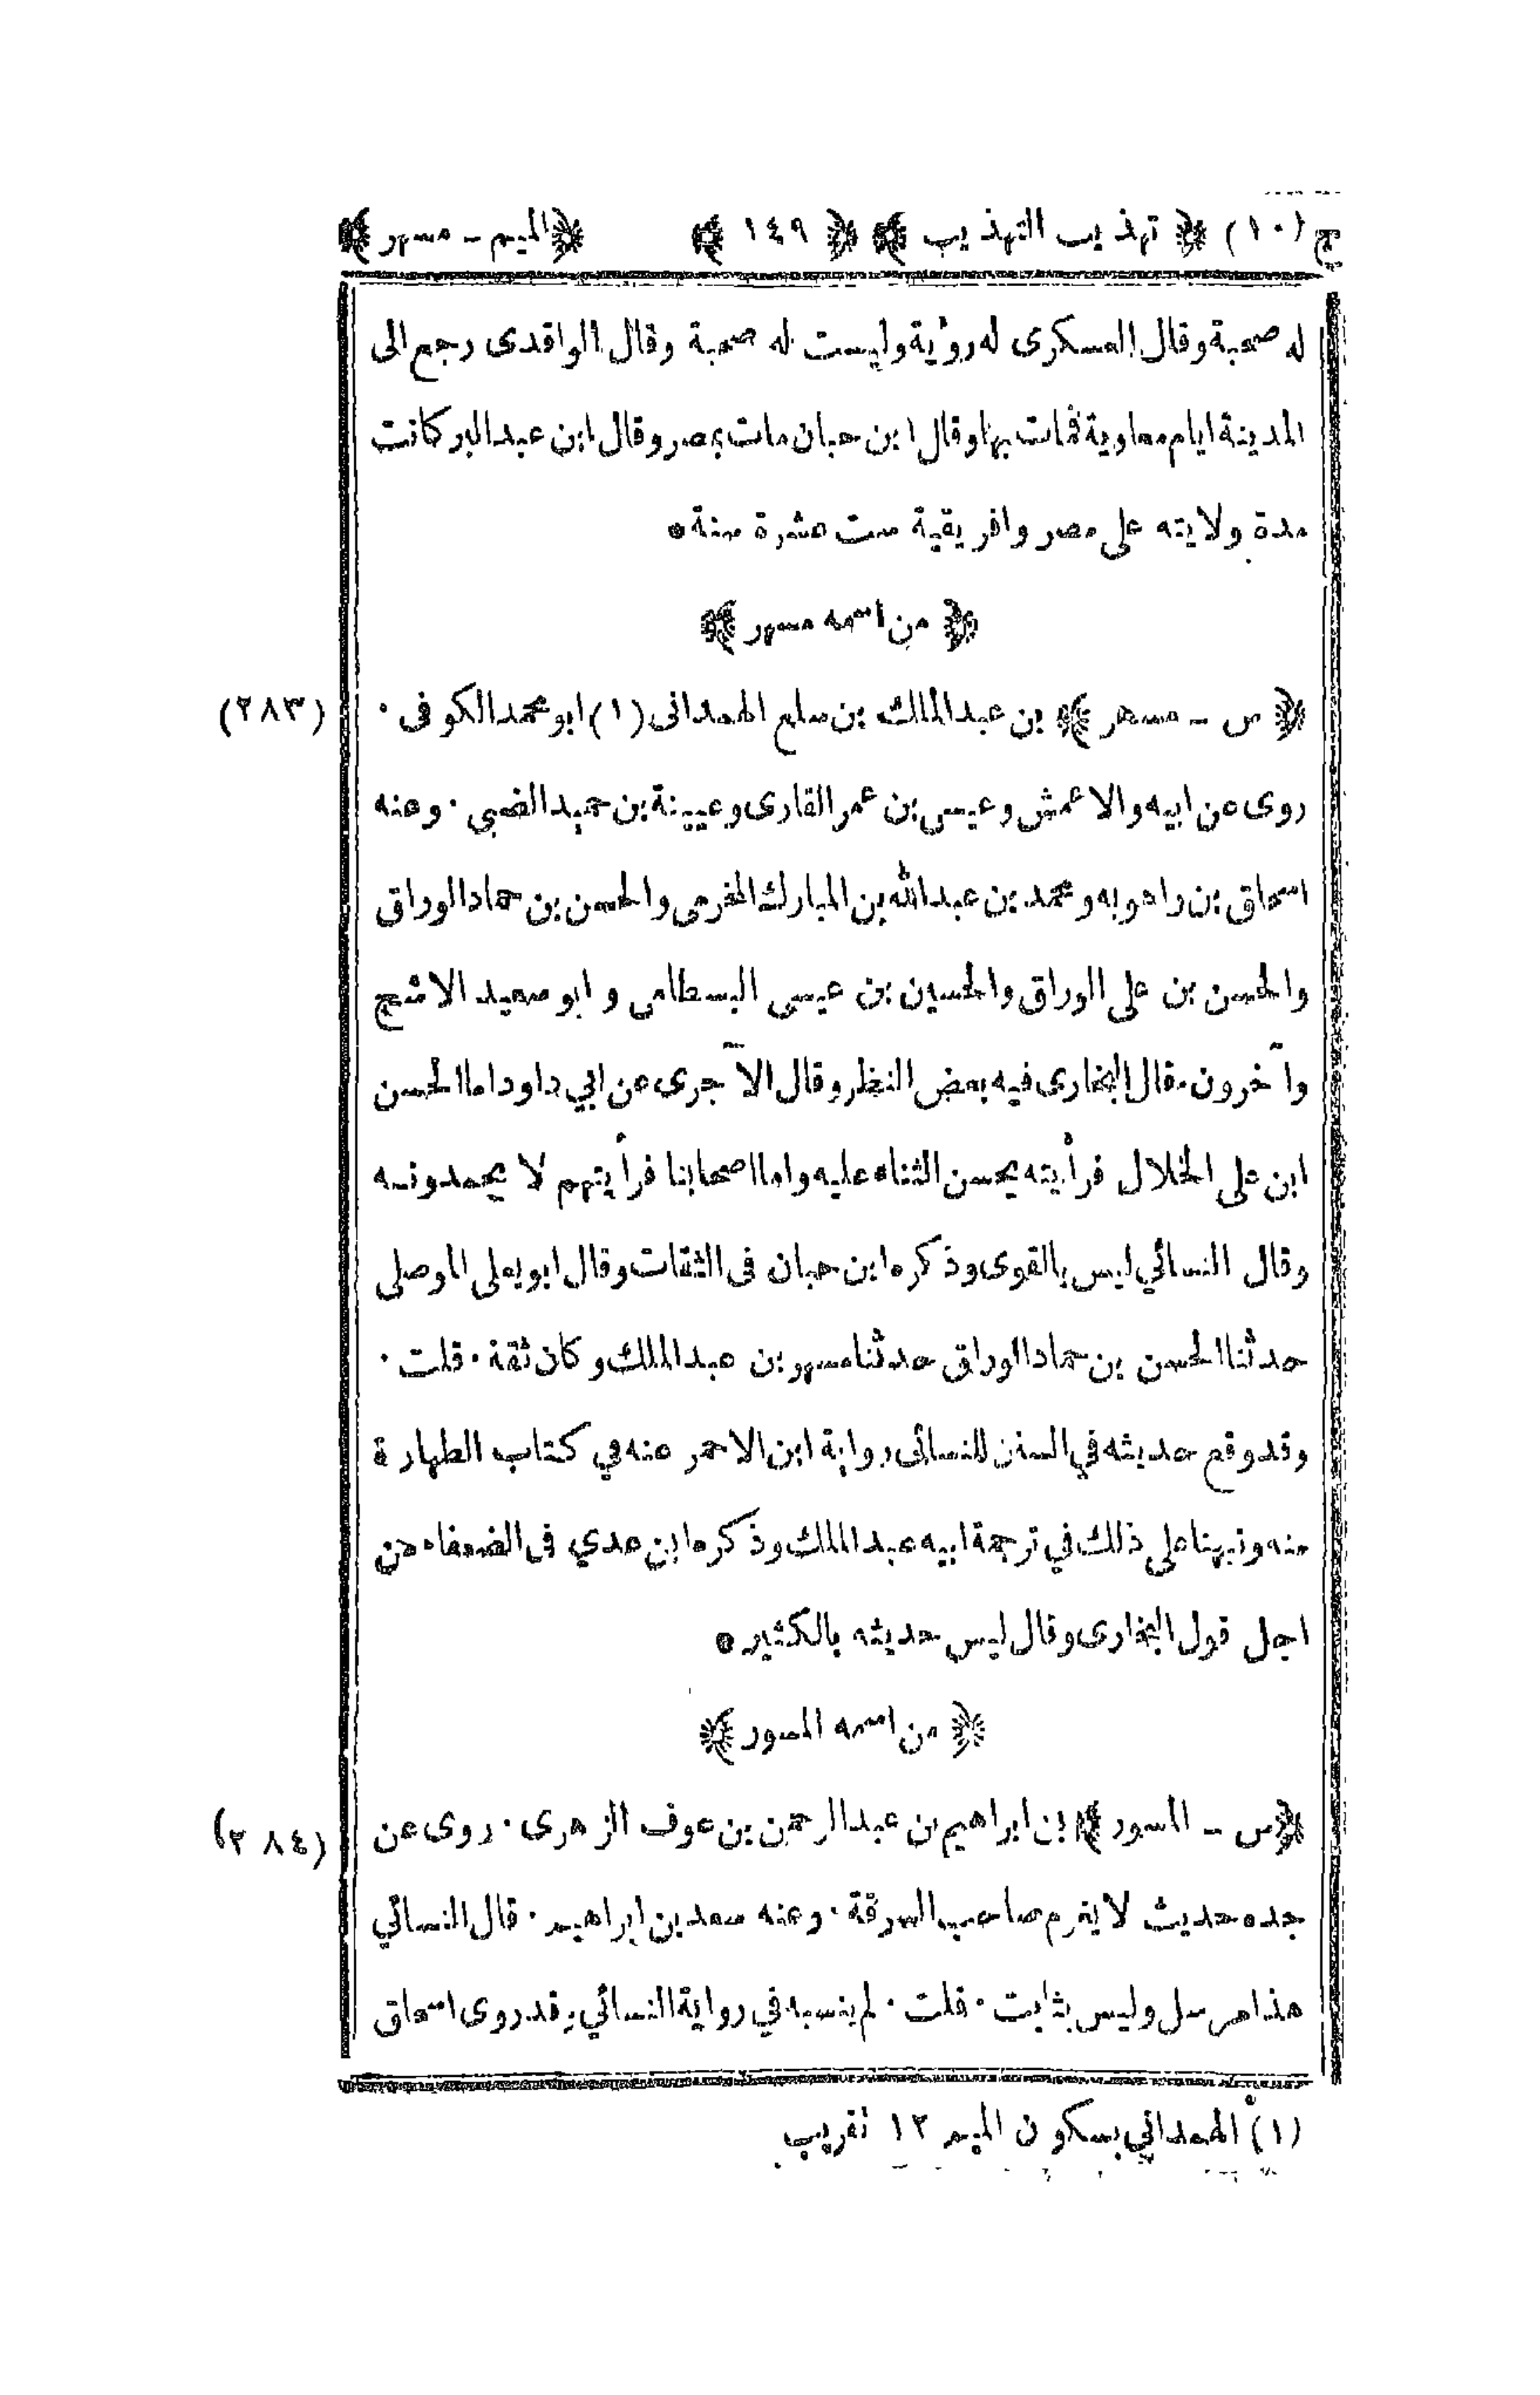 ج (١٠) ﴿ تهذيب التهذيب ﴾ ﴿ ١٤٩ ﴾ ﴿ الميم ـ مسهر ﴾
له صحبة وقال العسكرى له رؤية وليست له صحبة وقال الواقدى رجع الى
المدينة ايام معاوية فمات بها وقال ابن حبان مات بمصر وقال ابن عبد البر كانت
مدة ولايته على مصر وافريقية ست عشرة سنة ٥
﴿ من اسمه مسهر ﴾
﴿ س ـ مسهر ﴾ بن عبد الملك بن سلع الهمدانى (١) ابو محمد الكوفى ٠ (٢٨٣)
روى عن ابيه والاعمش وعيسى بن عمر القارى وعيينة بن حميد الضبي ٠ وعنه
اسحاق بن راهويه ومحمد بن عبد الله بن المبارك المخرمى والحسن بن حماد الوراق
والحسن بن على الوراق والحسين بن عيسى البسطامى و ابو سعيد الاشج
وآخرون ٠ قال البخارى فيه بعض النظر وقال الآجرى عن ابي داود اما الحسن
ابن على الخلال فرأيته يحسن الثناء عليه واما اصحابنا فرأيتهم لا يحمدونه
وقال النسائي ليس بالقوى وذكره ابن حبان فى الثقات وقال ابو يعلى الموصلى
حدثنا الحسن بن حماد الوراق حدثنا مسهر بن عبد الملك وكان ثقة ٠ قلت ٠
وقد وقع حديثه في السنن للنسائى رواية ابن الاحمر عنه في كتاب الطهارة
منه ونبهنا على ذلك في ترجمة ابيه عبد الملك وذكره ابن عدي فى الضعفاء من
اجل قول البخارى وقال ليس حديثه بالكثير ٥
﴿ من اسمه المسور ﴾
﴿ س ـ المسور ﴾ بن ابراهيم بن عبد الرحمن بن عوف الزهرى ٠ روى عن (٢٨٤)
جده حديث لا يغرم صاحب السرقة ٠ وعنه سعد بن ابراهيم ٠ قال النسائي
هذا مرسل وليس بثابت ٠ قلت ٠ لم ينسبه في رواية النسائي وقد روى اسحاق
(١) الهمداني بسكون الميم ١٢ تقريب